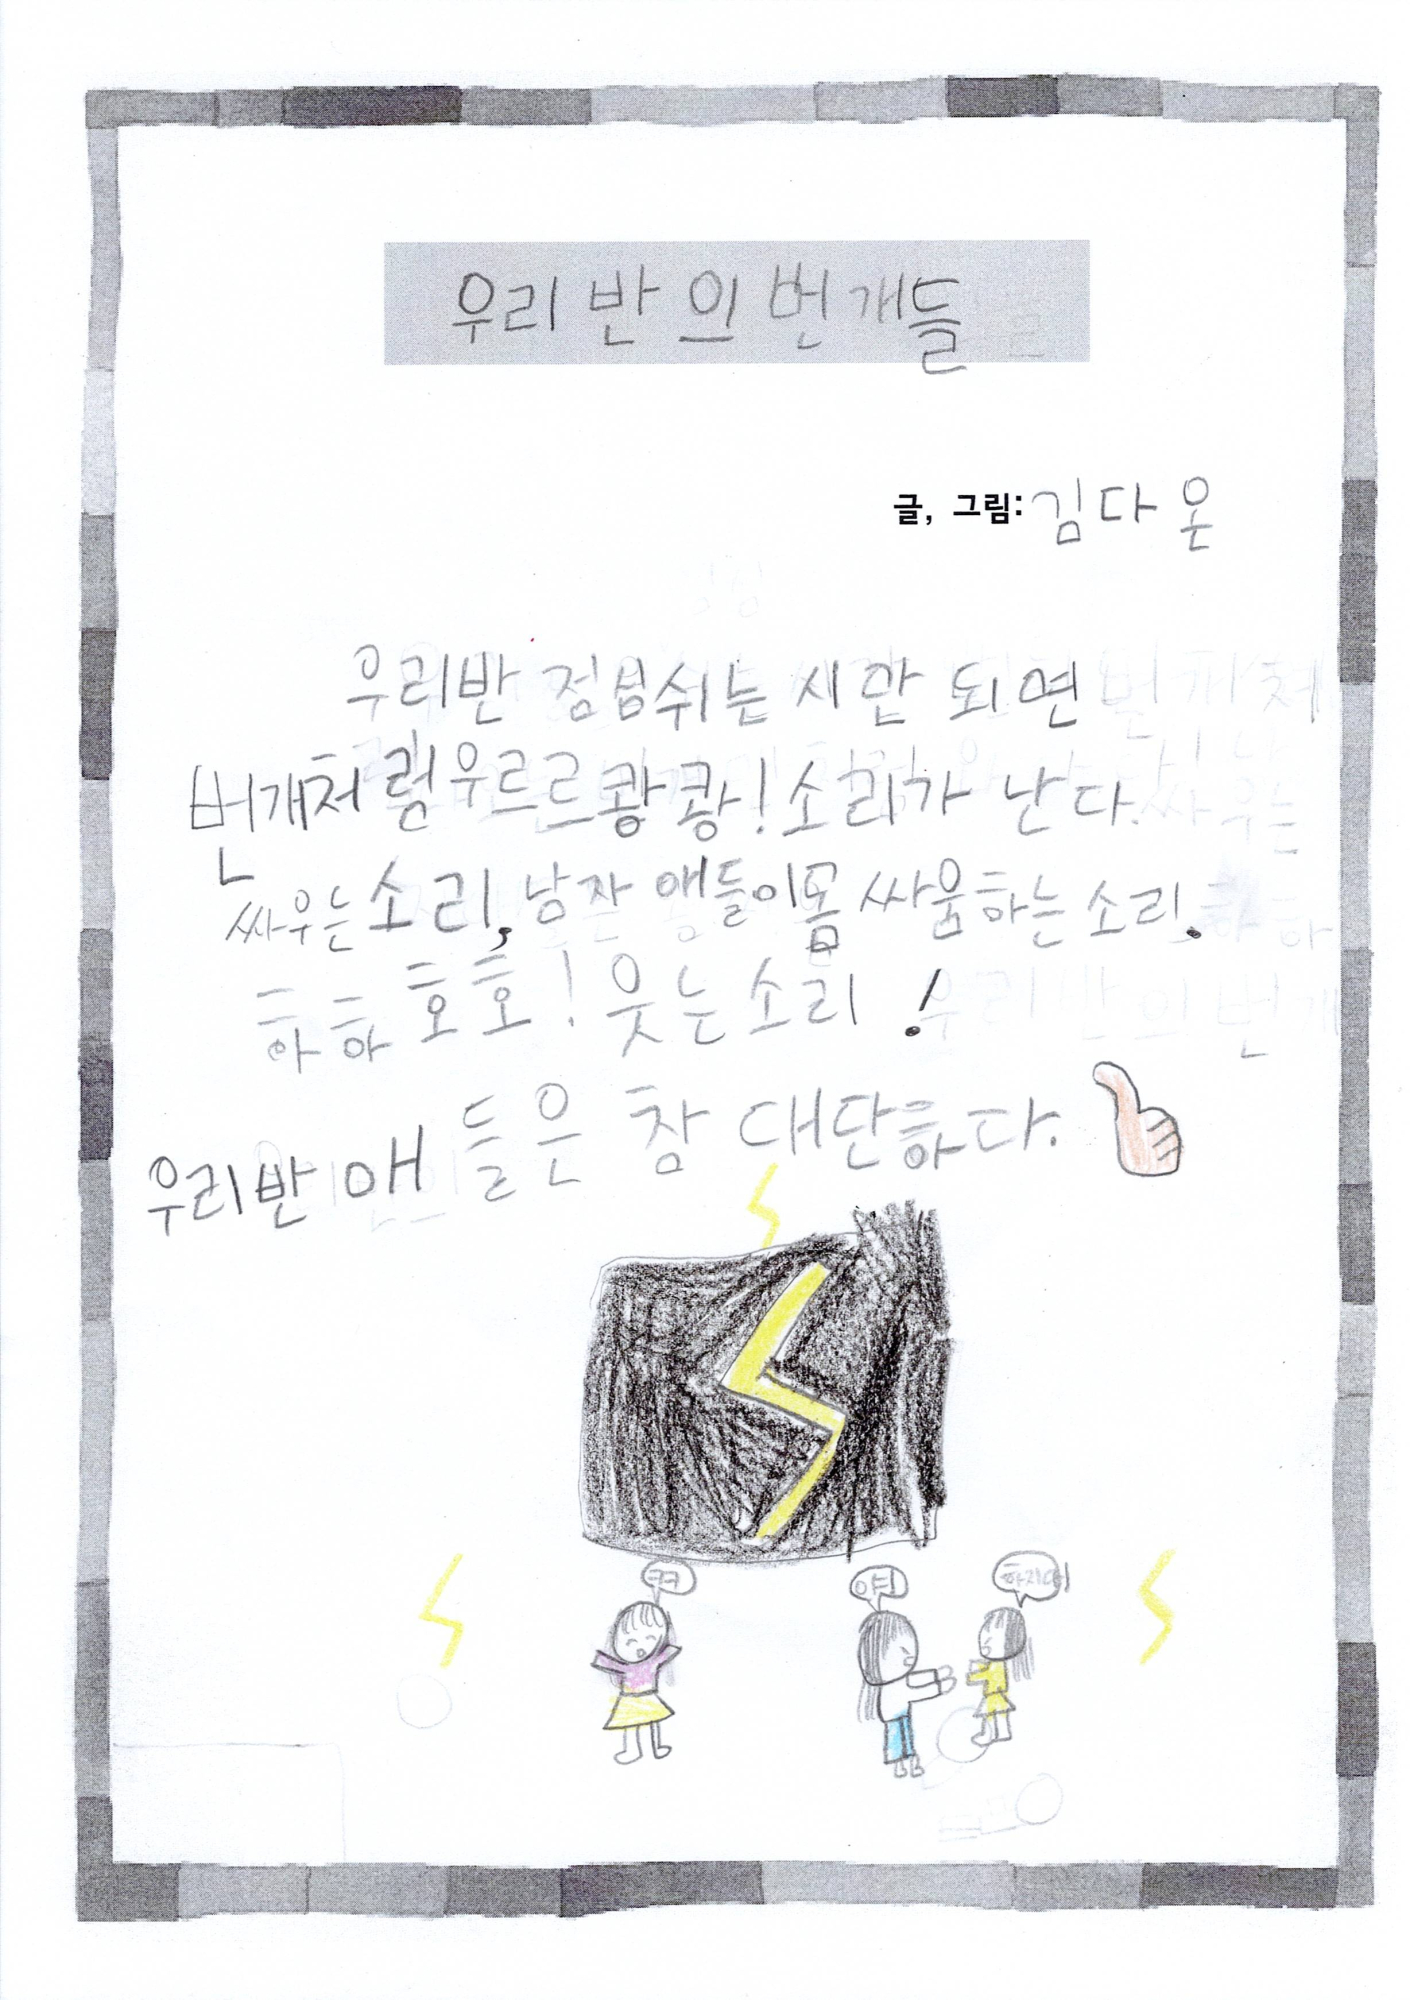 우리 반의 번개들
글, 그림: 김다온
우리반 점심쉬는 시간 되면
번개처럼 우르르 쾅쾅! 소리가 난다.
싸우는 소리, 남자 애들이 몸 싸움하는 소리.
하하 호호! 웃는 소리!
우리반 애들은 참 대단하다.
ㅋㅋ
야!
하지마!